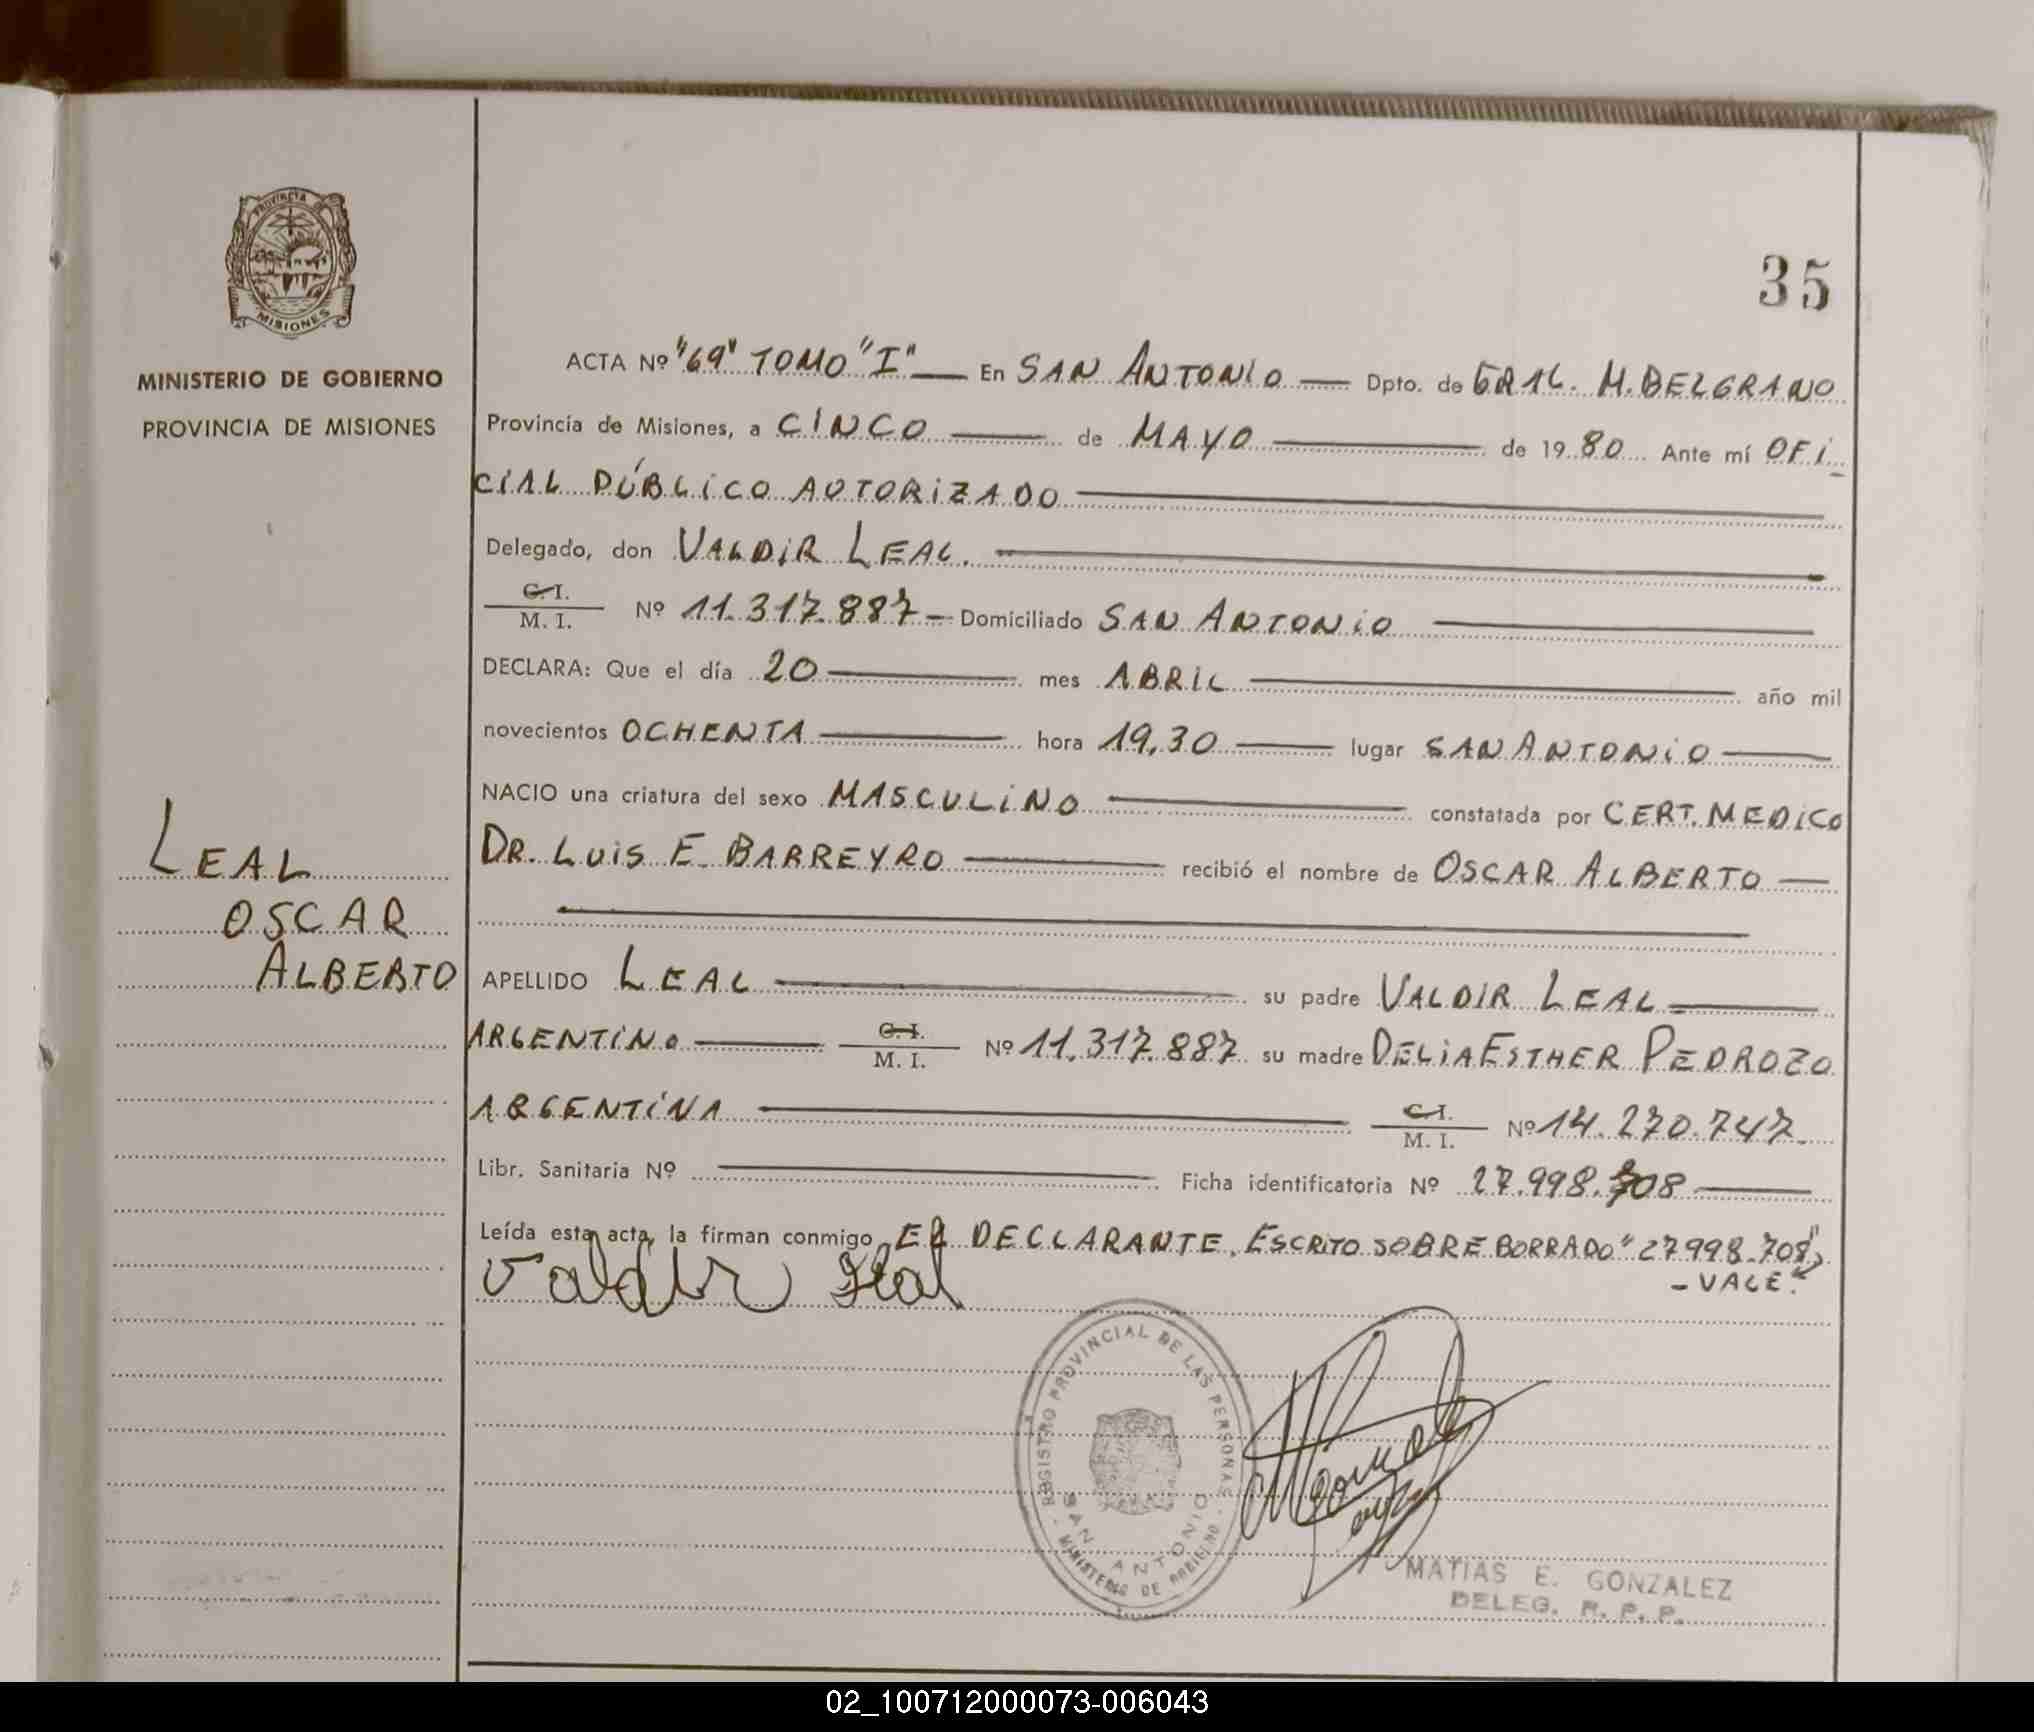 35
PROVINCIA DE
MISIONES
MINISTERIO DE GOBIERNO
PROVINCIA DE MISIONES
LEAL
OSCAR
ALBERTO
ACTA Nº "69" TOMO "I" — En SAN ANTONIO — Dpto. de GRAL. M. BELGRANO
Provincia de Misiones, a CINCO — de MAYO — de 1980 Ante mí OFI-
CIAL PÚBLICO AUTORIZADO —
Delegado, don VALDIR LEAL. —
C. I.
M. I. Nº 11.317.887 — Domiciliado SAN ANTONIO —
DECLARA: Que el día 20 — mes ABRIL — año mil
novecientos OCHENTA — hora 19,30 — lugar SAN ANTONIO —
NACIO una criatura del sexo MASCULINO — constatada por CERT. MEDICO
DR. LUIS E. BARREYRO — recibió el nombre de OSCAR ALBERTO —
APELLIDO LEAL — su padre VALDIR LEAL —
ARGENTINO — C. I. / M. I. Nº 11.317.887 su madre DELIA ESTHER PEDROZO
ARGENTINA — C. I. / M. I. Nº 14.270.747.
Libr. Sanitaria Nº — Ficha identificatoria Nº 27.998.708 —
Leída esta acta, la firman conmigo EL DECLARANTE. ESCRITO SOBRE BORRADO "27998.708"
- VALE.
Valdir Leal
REGISTRO PROVINCIAL DE LAS PERSONAS
SAN ANTONIO
MINISTERIO DE GOBIERNO
MATIAS E. GONZALEZ
DELEG. R. P. P.
02_100712000073-006043